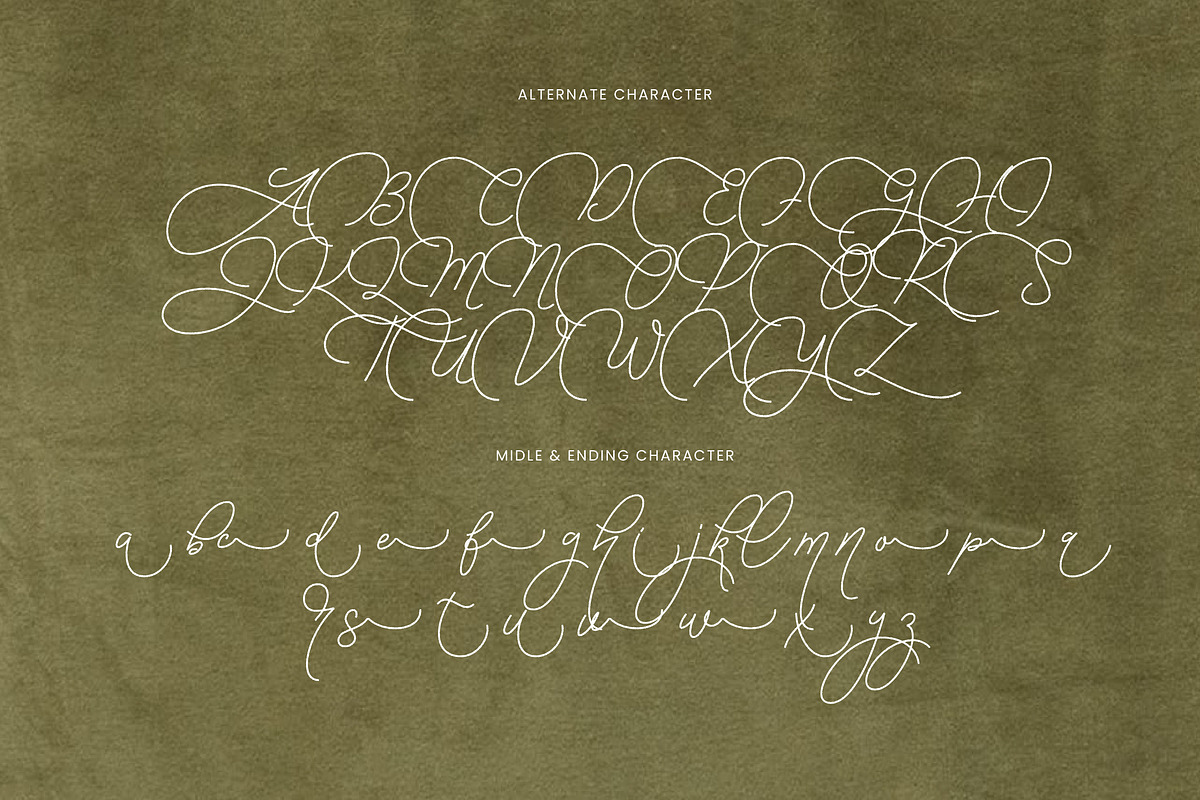 ALTERNATE CHARACTER
A B C D E F G H I
J K L M N O P Q R S
T U V W X Y Z
MIDLE & ENDING CHARACTER
a b c d e f g h i j k l m n o p q
r s t u v w x y z